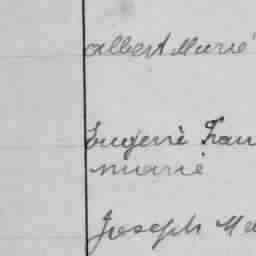 Albert Marie
Eugenie Fran
marie
Joseph Ma